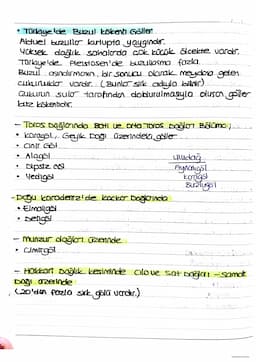 • Türkiye'de Buzul Kökenli Göller
Aktüel buzullar kutupta yaygındır.
Yüksek dağlık sahalarda çok küçük ölçekte vardır.
Türkiye'de Pleistosen'de buzullaşma fazla.
Buzul aşındırmanın bir sonucu olarak meydana gelen
çukurluklar vardır. (Bunlar sirk adıyla bilinir)
Çukurun sular tarafından doldurulmasıyla oluşan göller
buz kökenlidir.
- Toros Dağlarında Batı ve Orta Toros Dağları Bölümü,
• Karagöl, Geyik Dağı üzerindeki göller
• Çinili Göl
• Alagöl
• Dipsiz göl
• Yedigöl
Uludağ
Aynalıgöl
Karagöl
Buzlugöl
- Doğu Karadeniz'de Kaçkar Dağlarında
• Elmalıgöl
• Denizgöl
- Munzur dağları üzerinde
• Cimrigöl
- Hakkari Dağlık kesiminde Cilo ve Sat Dağları -
Dağı üzerinde
(20'den fazla sirk gölü vardır.)